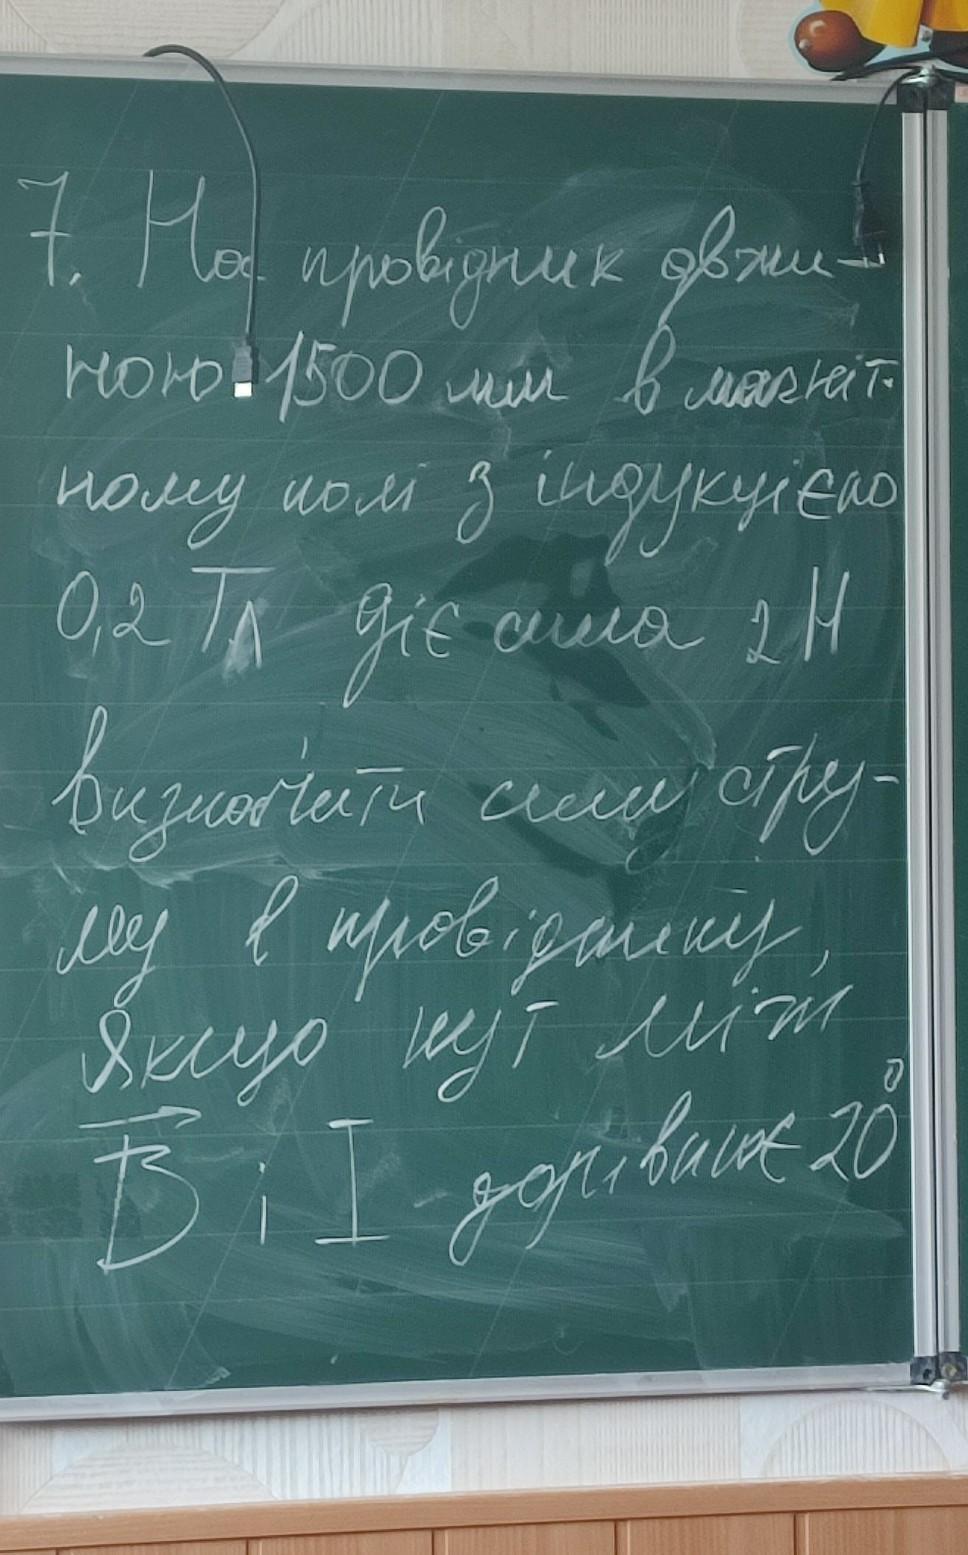 7. На провідник довжи-
ною 1500 мм в магніт-
ному полі з індукцією
0,2 Тл діє сила 2 Н
визначити силу стру-
му в провіднику,
якщо кут між
B і I дорівнює 20°